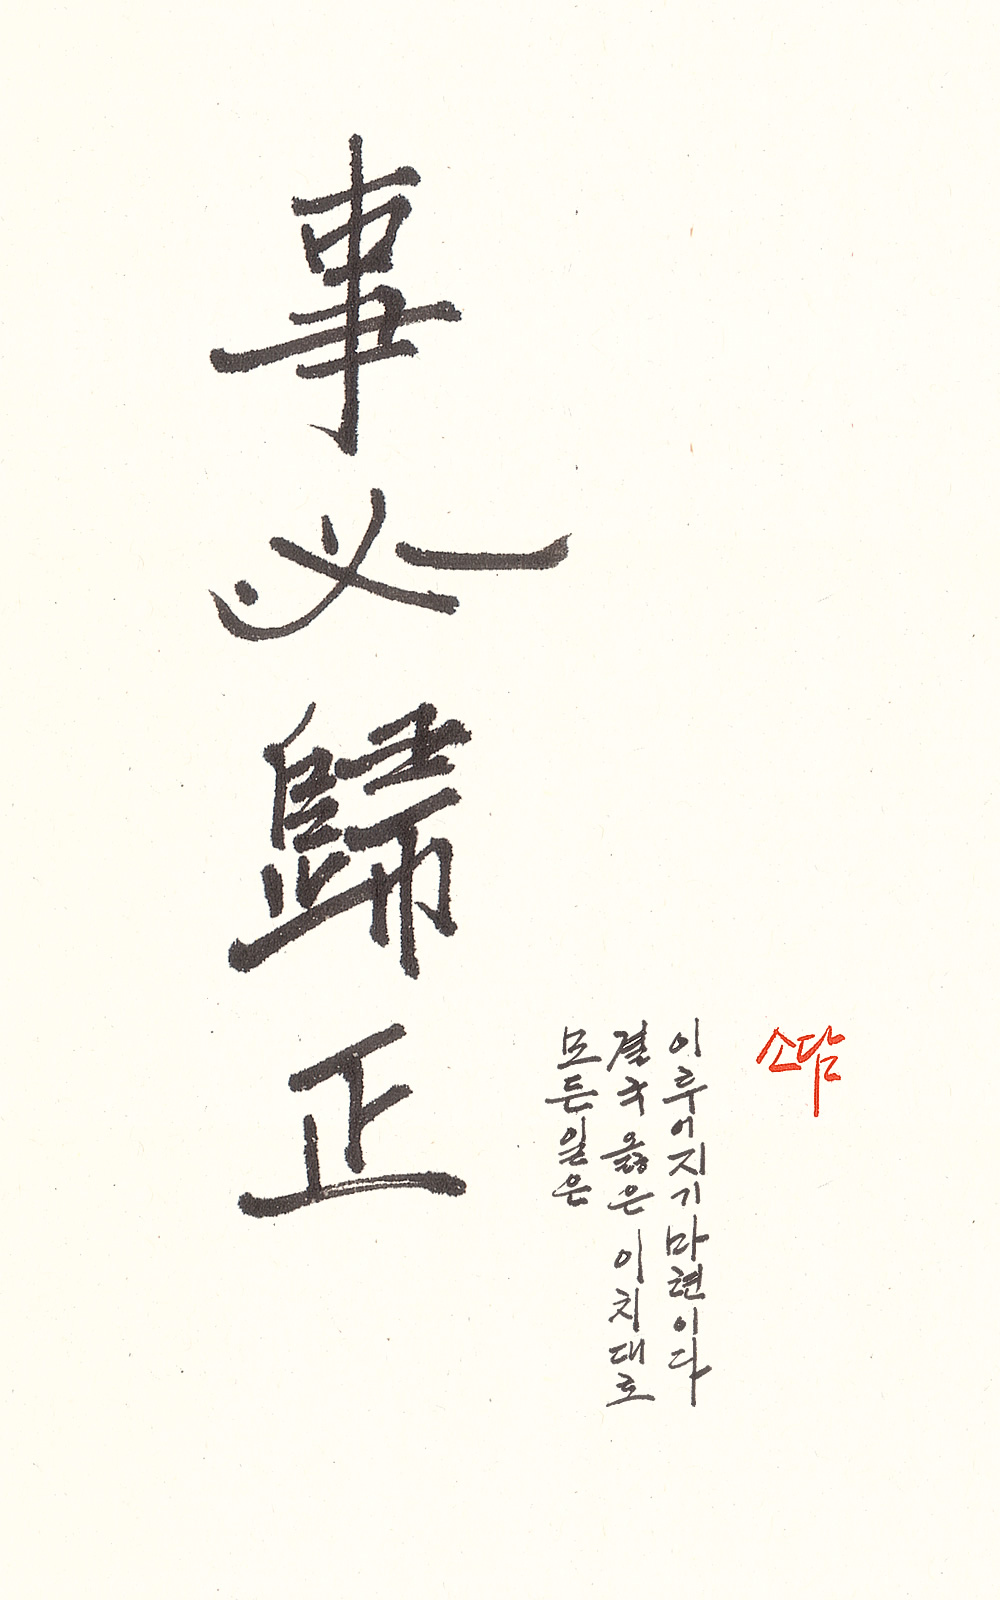 事必歸正
모든일은
결국 옳은 이치대로
이루어지기마련이다
소담